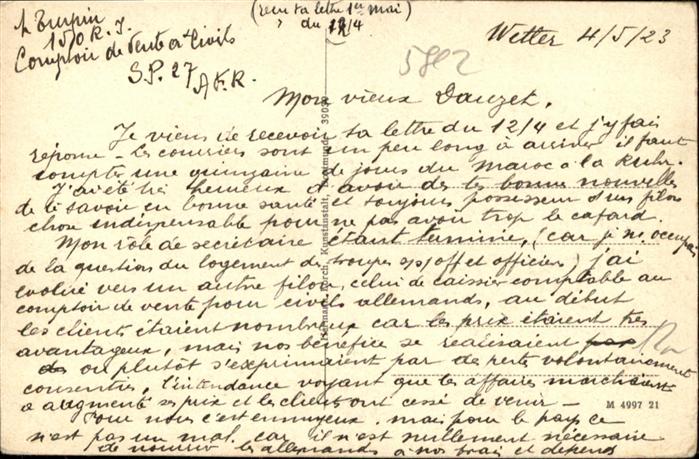 Turpin
150 R.I.
Comptoir de Vente aux Civils
S.P. 27
A.F.R.
(reçu ta lettre 1er mai)
du 12/4
Wetter 4/5/23
5802
Mon vieux Dauzet,
Je viens de recevoir ta lettre du 12/4 et j'y fais
réponse - Les courriers sont un peu long à arriver il faut
compter une quinzaine de jours du Maroc à la Ruhr.
J'ai été très heureux d'avoir de tes bonne nouvelles
de te savoir en bonne santé et toujours possesseur d'un filon
chose indispensable pour ne pas avoir trop le cafard.
Mon rôle de secrétaire étant terminé, (car je ne m'occupais
de la question du logement des troupes s/off et officiers) j'ai
évolué vers un autre filon, celui de caissier comptable au
comptoir de vente pour civils allemands, au début
les clients étaient nombreux car les prix étaient très
avantageux, mais nos bénéfice se réalisaient
ou plutôt s'exprimaient par de perte volontairement
consenties, l'intendance voyant que les affaires marchaient
a augmenté ses prix et les clients ont cessé de venir -
Pour nous c'est ennuyeux, mais pour le pays ce
n'est pas un mal, car il n'est nullement nécessaire
de nourrir les allemands à nos frais et dépens
Hermann Lorch, Kunstanstalt, Dortmund 3902
M 4997 21